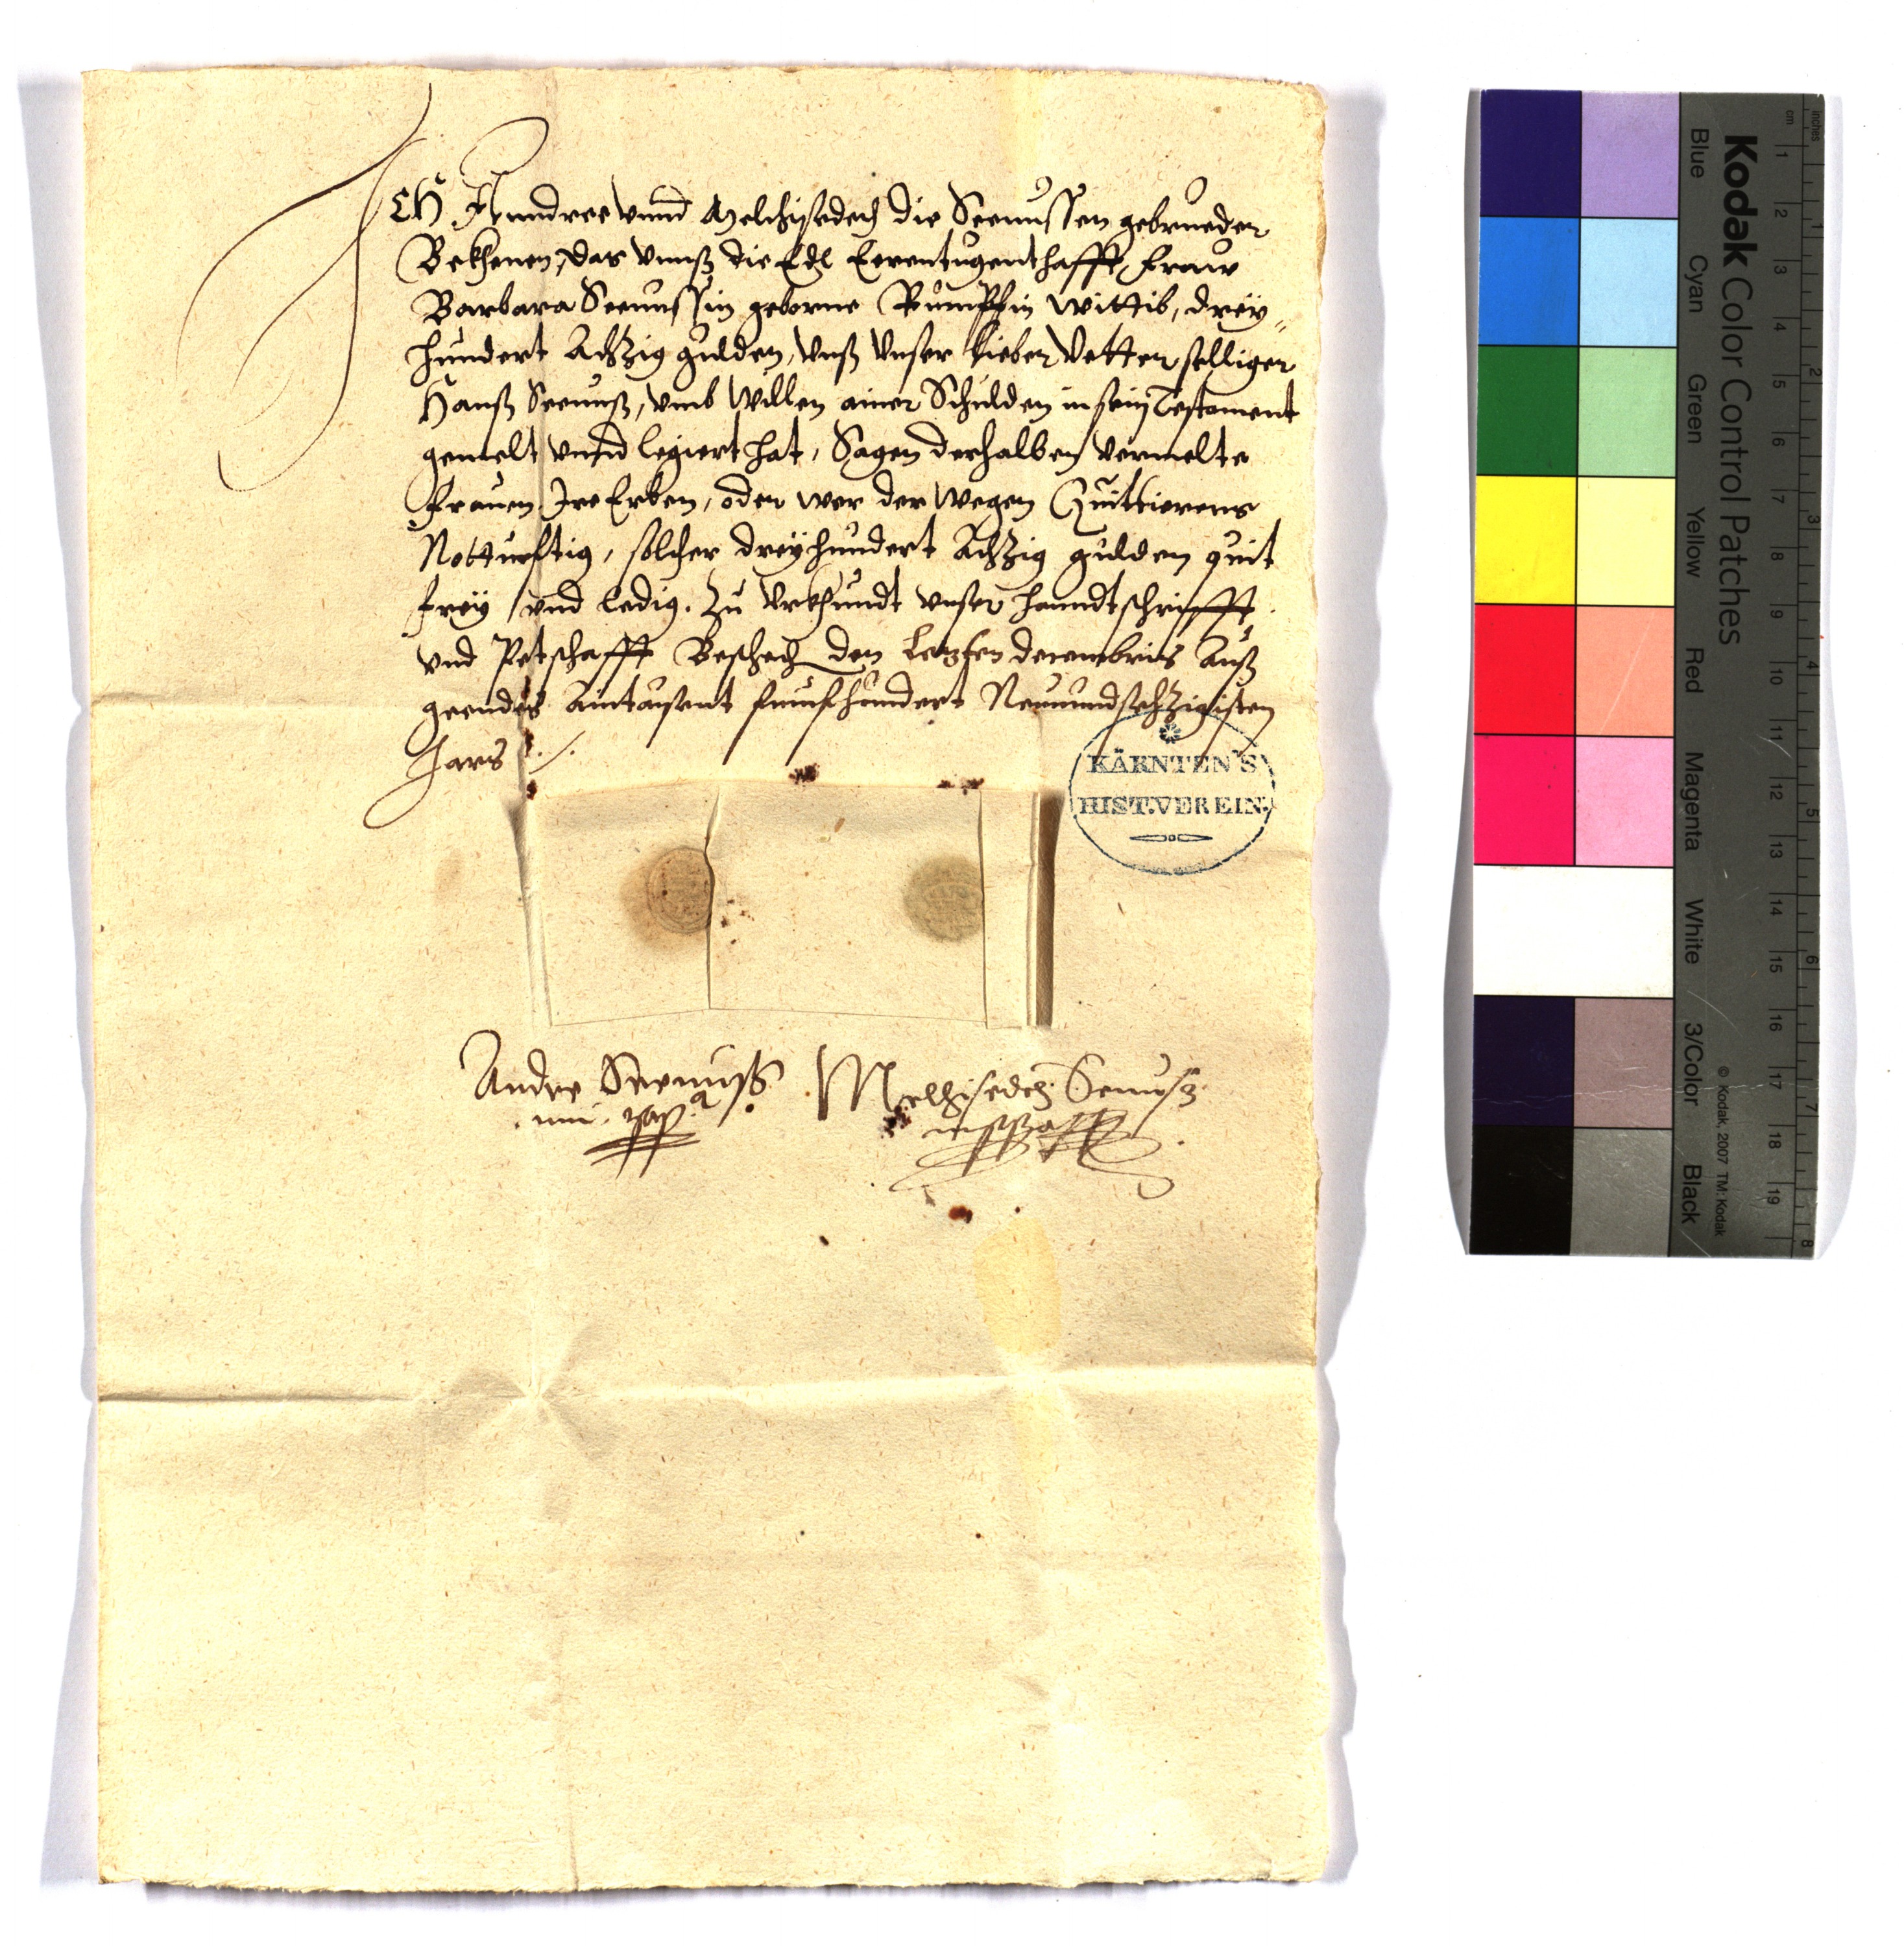 ICH Anndree vnnd Melchisedech die Seenussen gebrueder
Bekhenen, das vnnß die Edl Eerentugenthafft Fraw
Barbara Seenussin geborne Rumpfin Wittib, drey„
hundert Achzig gulden, vnß vnser lieber Vetter selliger
Hanß Seenuß, vmb Willen ainer Schulden in sein Testament
gemelt vnnd legiert hat, Sagen derhalben vermelte
Frauen Ire Erben, oder wer der wegen Quittierens
Notturftig, solcher dreyhundert Achzig gulden quit
frey vnd ledig. Zu Vrkhundt vnser hanndtschrifft
vnd Petschafft Beschech den Letzten decembris Auß
geendes Aintausent funfhundert Neunundsechzigisten
Jars ./.
Andre Seenuss Melchisedech Senusz
KÄRNTEN'S
HIST. VEREIN.
Kodak Color Control Patches
Blue Cyan Green Yellow Red Magenta White 3/Color Black
© Kodak, 2007 TM: Kodak
inches 1 2 3 4 5 6 7 8
cm 1 2 3 4 5 6 7 8 9 10 11 12 13 14 15 16 17 18 19